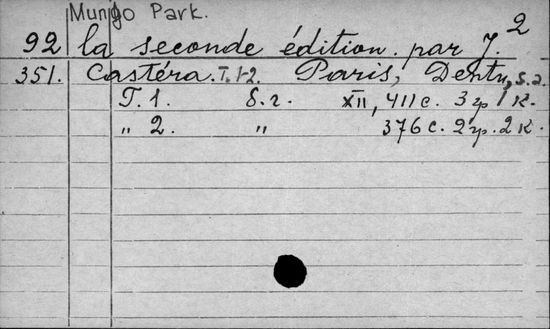 Mungo Park.
2
92 la seconde édition. par J.
351. Castéra. T. 1-2. Paris, Dentu, s.a.
T. 1. S. г. XII, 411 с. 3 гр. 1 к.
„ 2. „ 376 с. 2 гр. 2 к.